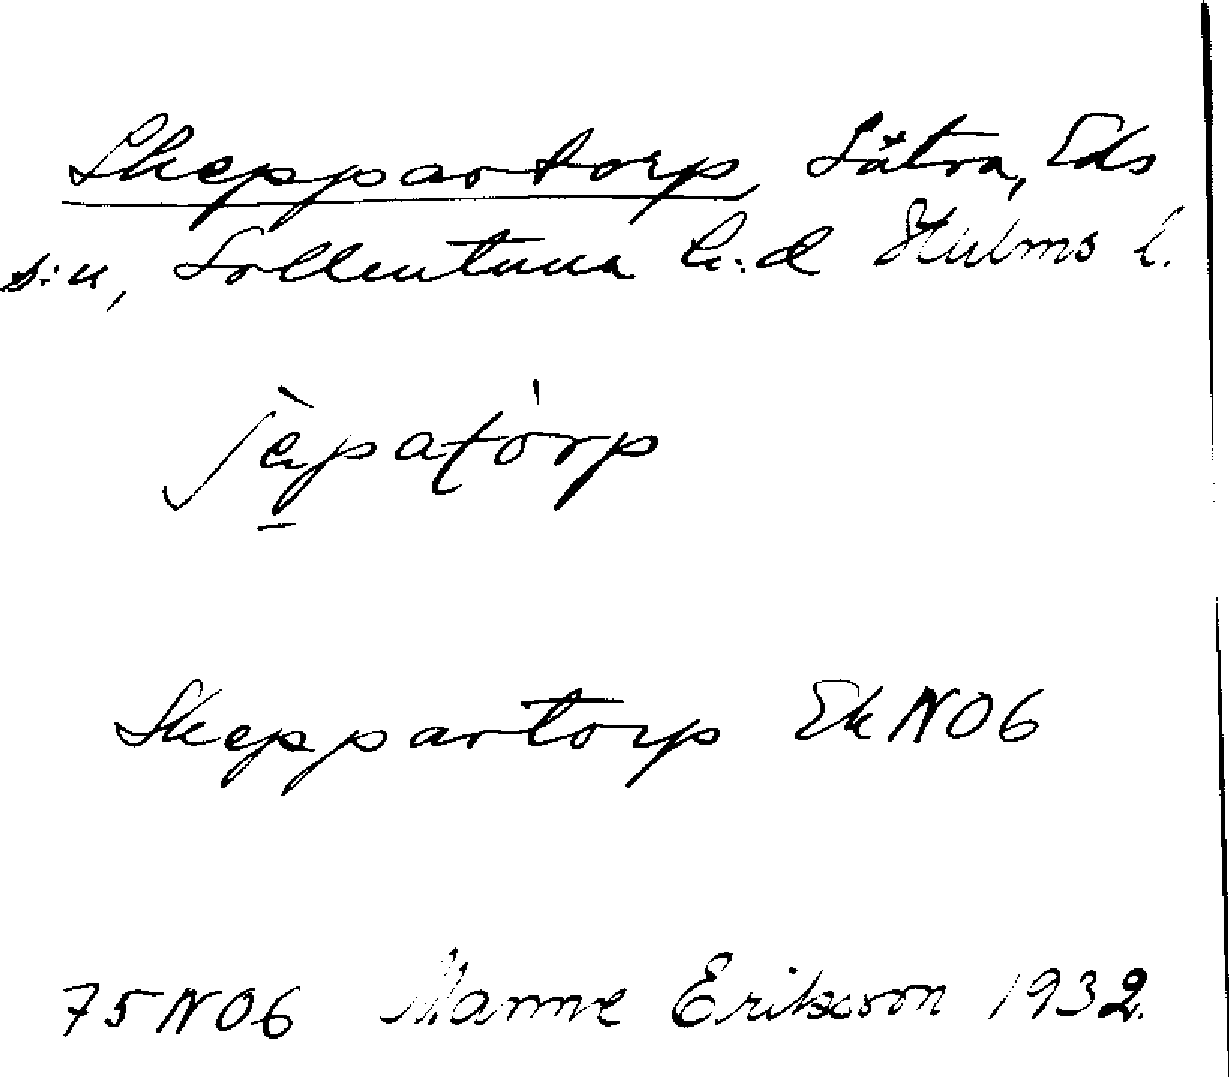 Skeppartorp, Sätra, Eds
s:n, Sollentuna h:d Sthlms l.
Skeppartorp Ek NO6
75NO6 Manne Eriksson 1932.